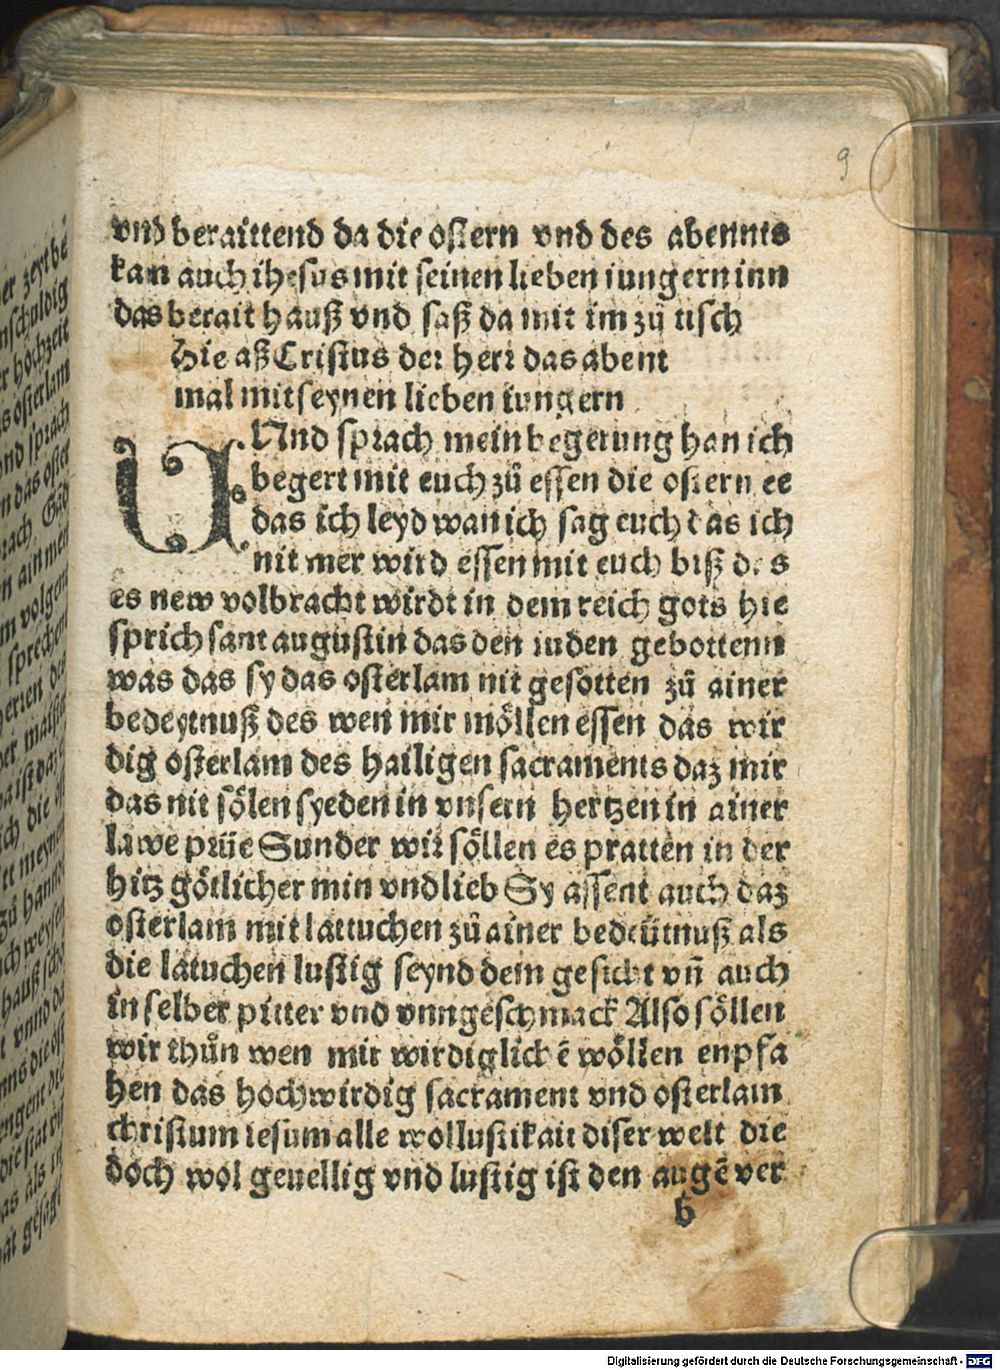 9
vnd beraittend da die ostern vnd des abennts
kam auch ihesus mit seinen lieben iungern inn
das berait hauß vnd saß da mit im zů tisch
Hie aß Cristus der herr das abent
mal mit seynen lieben iungern
UNnd sprach mein begerung han ich
begert mit euch zů essen die ostern ee
das ich leyd wan ich sag euch das ich
nit mer wird essen mit euch biß des
es new volbracht wirdt in dem reich gots hie
sprich sant augustin das den iuden gebottenn
was das sy das osterlam nit gesotten zů ainer
bedeytnuß des wen mir möllen essen das wir
dig osterlam des hailigen sacraments daz mir
das nit sölen syeden in vnsern hertzen in ainer
lawe prüe Sunder wir söllen es pratten in der
hitz götlicher min vnd lieb Sy assent auch daz
osterlam mit lattuchen zů ainer bedeütnuß als
die latuchen lustig seynd dem gesicht vn̄ auch
in selber pitter vnd vnngeschmack Also söllen
wir thůn wen mir wirdiglichē wöllen enpfa
hen das hochwirdig sacrament vnd osterlam
christum iesum alle wollustikait diser welt die
doch wol geuellig vnd lustig ist den augē ver
b
Digitalisierung gefördert durch die Deutsche Forschungsgemeinschaft - DFG